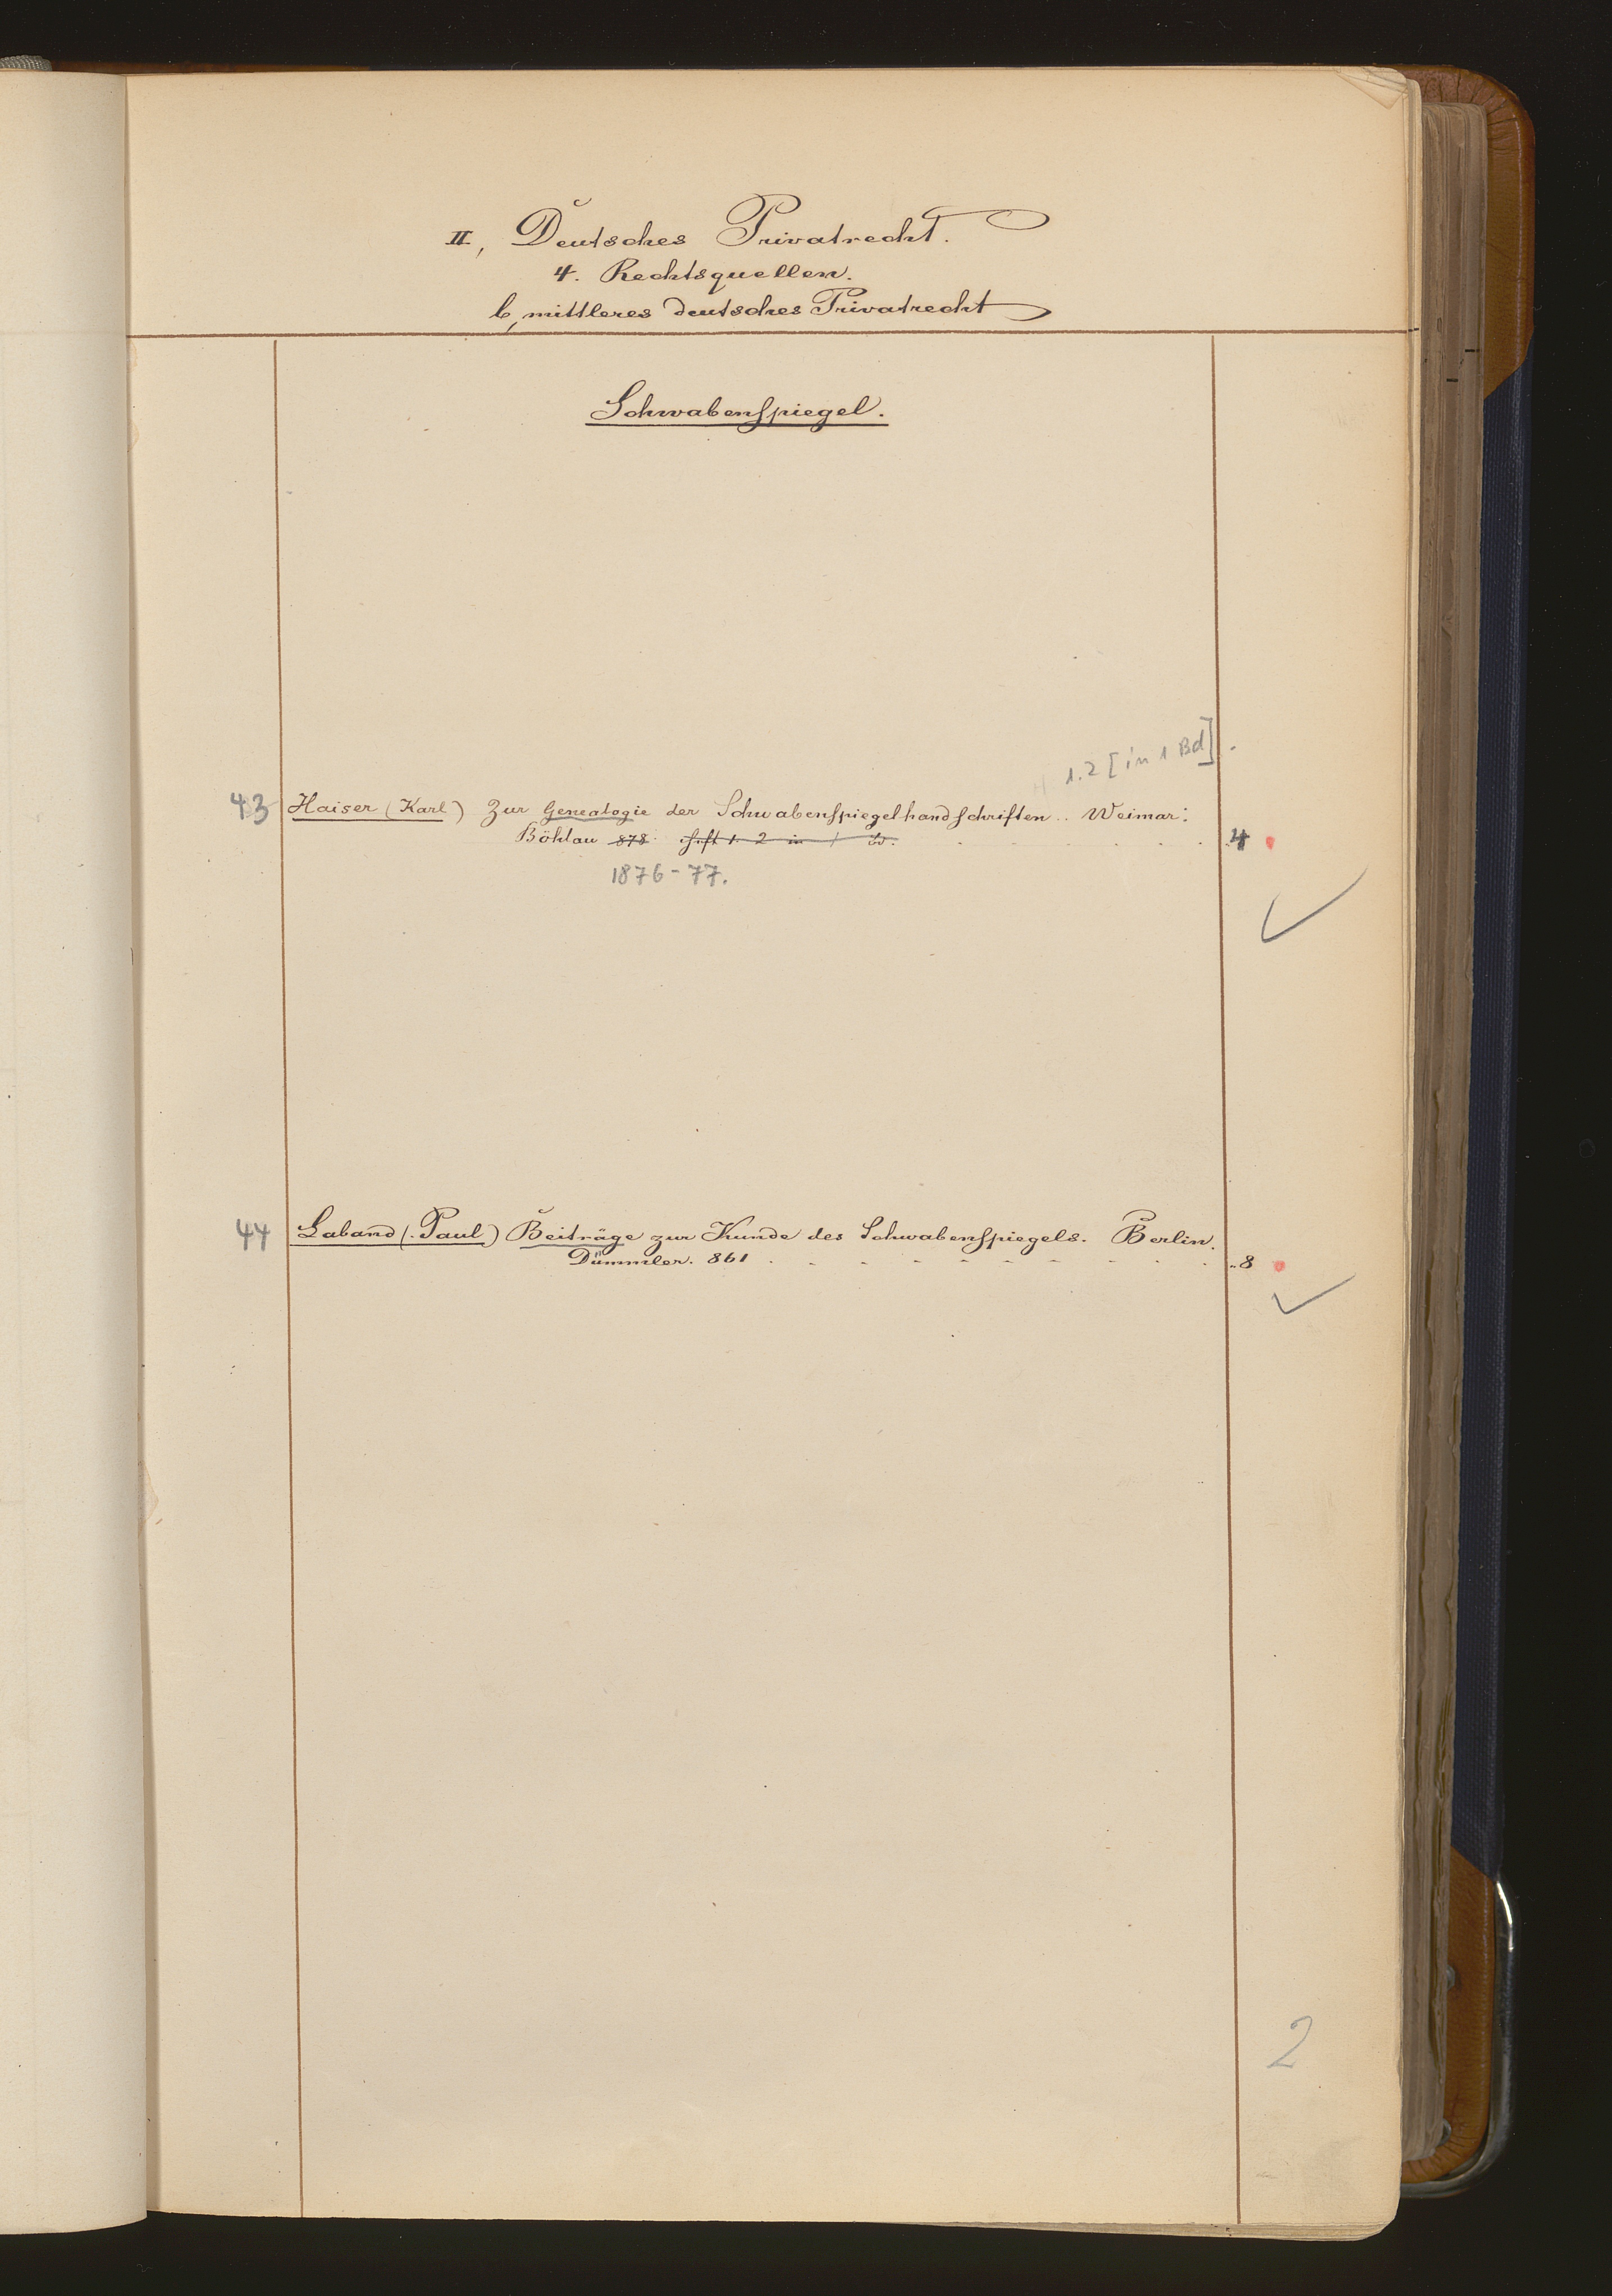 II, Deutsches Privatrecht.
4. Rechtsquellen.
b, mittleres deutsches Privatrecht
Schwabenspiegel.
1.2 [in 1 Bd].
43 Haiser (Karl) Zur Genealogie der Schwabenspiegelhandschriften.. Weimar:
Böhlau 878. Heft 1. 2 in 1 Bd. 4
1876-77.
44 Laband (Paul) Beiträge zur Kunde des Schwabenspiegels. Berlin.
Dümmler. 861 8
2